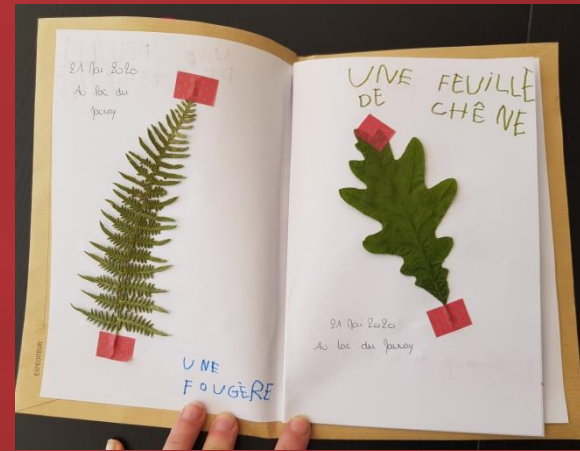 21 Mai 2020
Au lac du
Jaunay
UNE
FOUGÈRE
UNE FEUILLE
DE CHÊNE
21 Mai 2020
Au lac du Jaunay